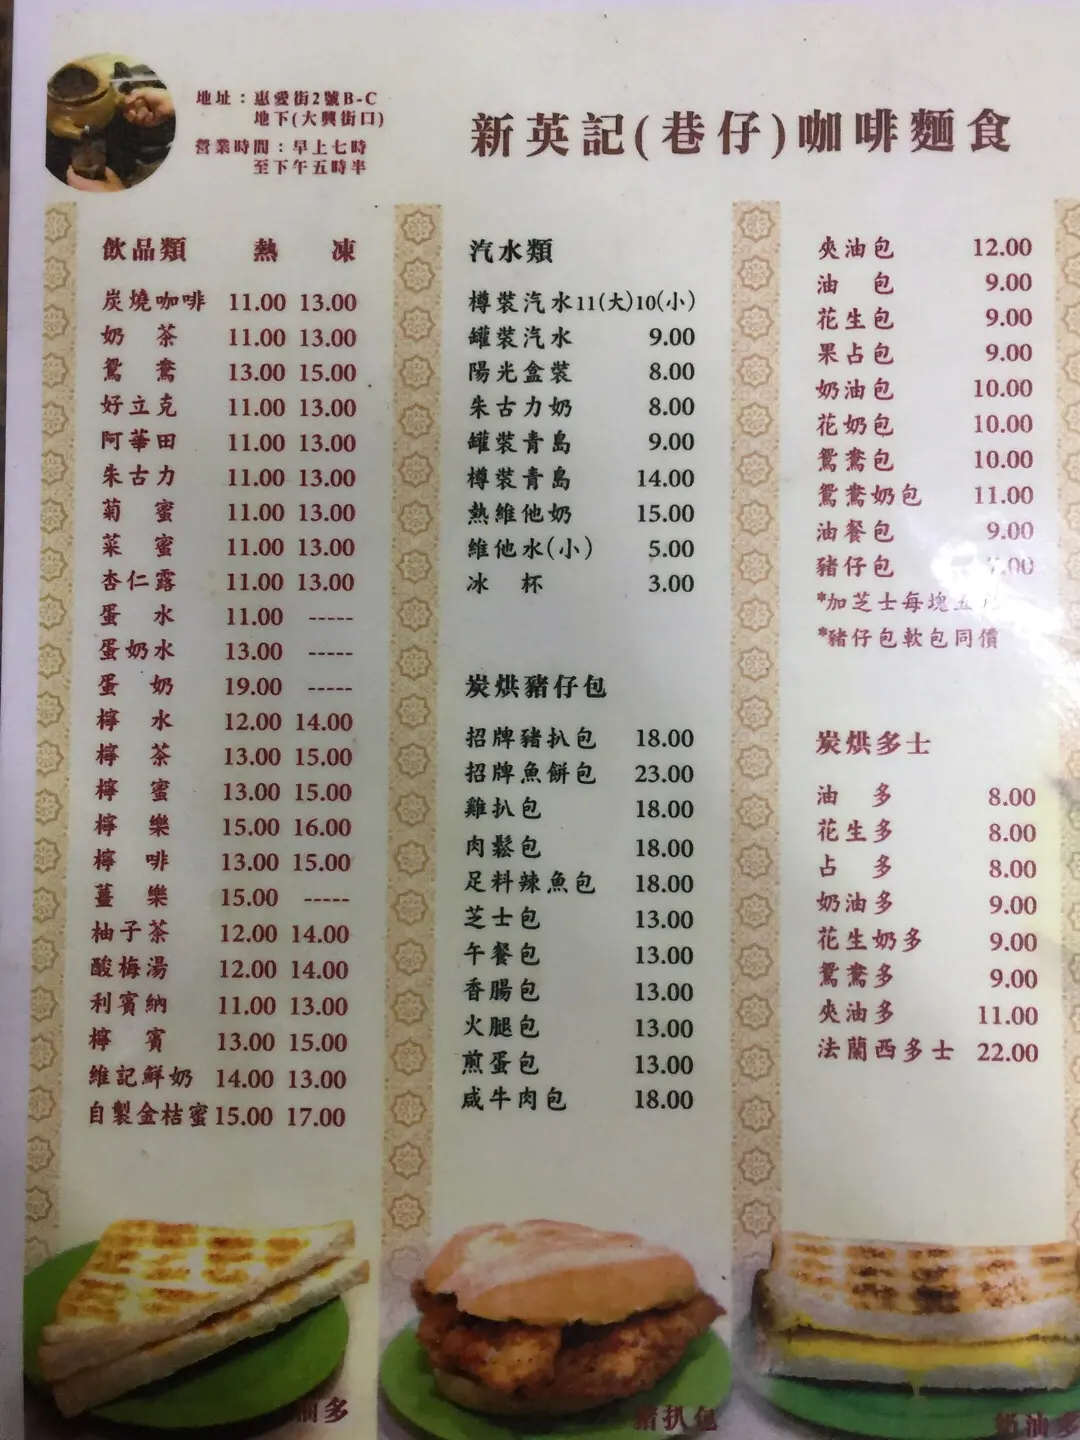 地址：惠愛街2號B-C
地下(大興街口)
營業時間：早上七時
至下午五時半
新英記(巷仔)咖啡麵食
飲品類 熱 凍
炭燒咖啡 11.00 13.00
奶 茶 11.00 13.00
鴛 鴦 13.00 15.00
好立克 11.00 13.00
阿華田 11.00 13.00
朱古力 11.00 13.00
菊 蜜 11.00 13.00
菜 蜜 11.00 13.00
杏仁露 11.00 13.00
蛋 水 11.00 -----
蛋奶水 13.00 -----
蛋 奶 19.00 -----
檸 水 12.00 14.00
檸 茶 13.00 15.00
檸 蜜 13.00 15.00
檸 樂 15.00 16.00
檸 啡 13.00 15.00
薑 樂 15.00 -----
柚子茶 12.00 14.00
酸梅湯 12.00 14.00
利賓納 11.00 13.00
檸 賓 13.00 15.00
維記鮮奶 14.00 13.00
自製金桔蜜 15.00 17.00
汽水類
樽裝汽水11(大)10(小)
罐裝汽水 9.00
陽光盒裝 8.00
朱古力奶 8.00
罐裝青島 9.00
樽裝青島 14.00
熱維他奶 15.00
維他水(小) 5.00
冰 杯 3.00
炭烘豬仔包
招牌豬扒包 18.00
招牌魚餅包 23.00
雞扒包 18.00
肉鬆包 18.00
足料辣魚包 18.00
芝士包 13.00
午餐包 13.00
香腸包 13.00
火腿包 13.00
煎蛋包 13.00
咸牛肉包 18.00
夾油包 12.00
油 包 9.00
花生包 9.00
果占包 9.00
奶油包 10.00
花奶包 10.00
鴛鴦包 10.00
鴛鴦奶包 11.00
油餐包 9.00
豬仔包 .00
*加芝士每塊
*豬仔包軟包同價
炭烘多士
油 多 8.00
花生多 8.00
占 多 8.00
奶油多 9.00
花生奶多 9.00
鴛鴦多 9.00
夾油多 11.00
法蘭西多士 22.00
油多
豬扒包
奶油多